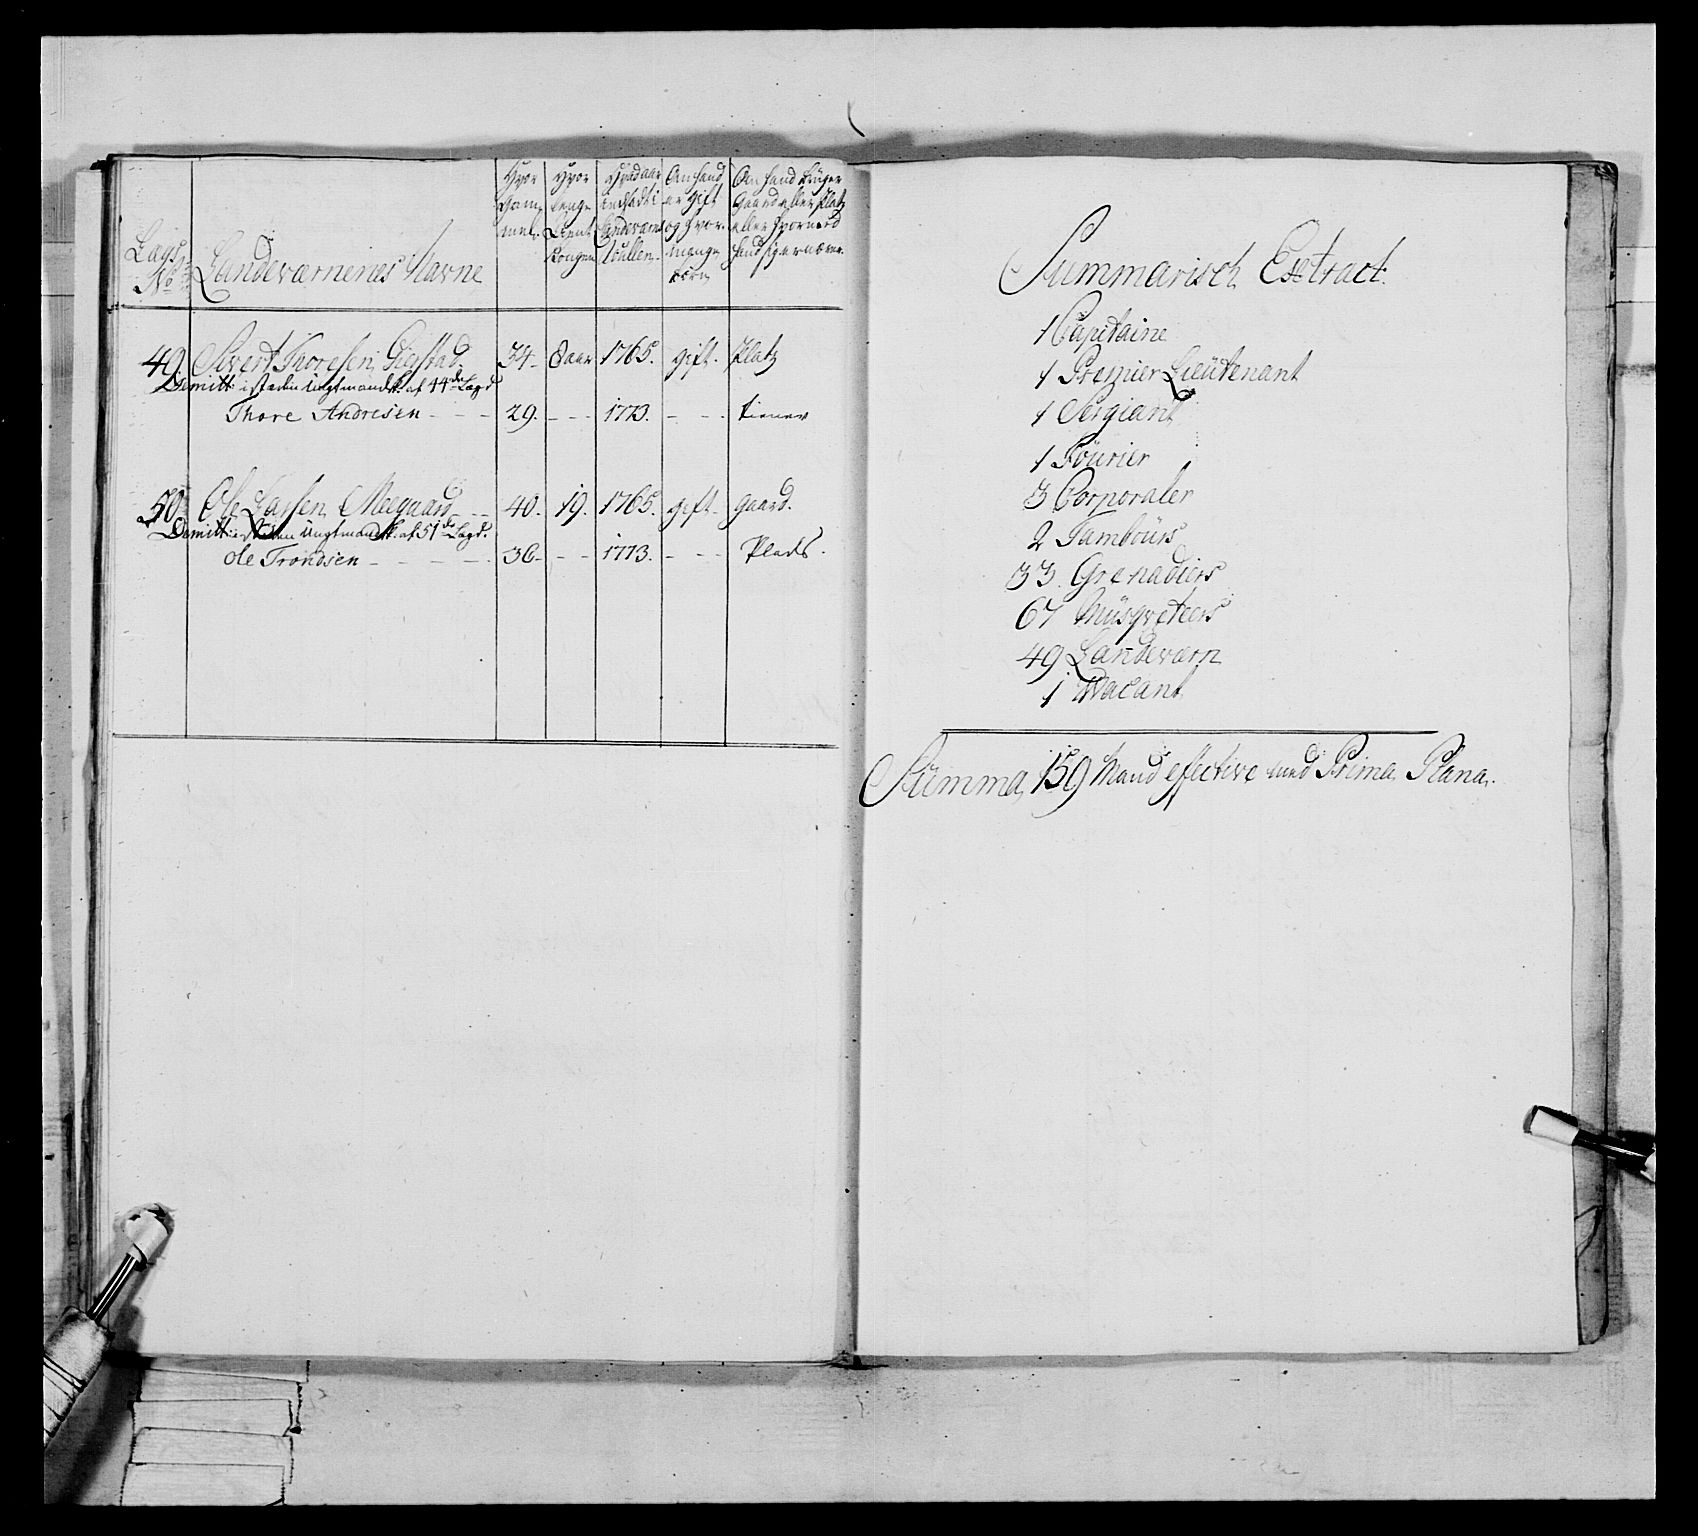 Lags No
Landeværnenes Navne
Hvor Gammel.
Hvor lenge tient Kongen
Hvad aar indsadt i Landeværns Roullen.
Om hand er gift og hvor mange børn
Om hand bruger Gaard eller Platz eller hvormed hand sig ernærer
49. Sivert Thoresen 34 8 aar 1765. gift. Platz
Demitt: i steden ungtmandsk: af 44de Lægd
Thore Andresen - - - 29. - - - 1773. - - - tiener
50. Ole Larsen Meegaard - - 40. 19. 1765. gift gaard.
Demitt: i steden ungtmandsk: af 51de Lægd.
Ole Trondsen - - - - - 36 - - - 1773. - - - Plads.
Summarisch Extract.
1 Capitaine
1 Premier Lieütenant
1 Sergiant
1 Foürier
3 Corporaler
2 Tamboürs
33. Grenadiers
67 Müsqveteers
49 Landeværn
1 Wacant
Summa, 159 Mand effective med Prima Plana.